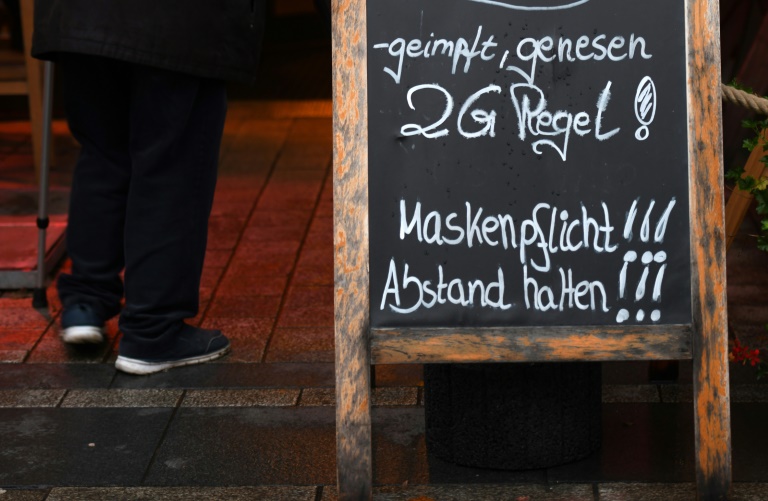 -geimpft, genesen
2G Regel!
Maskenpflicht!!!
Abstand halten!!!